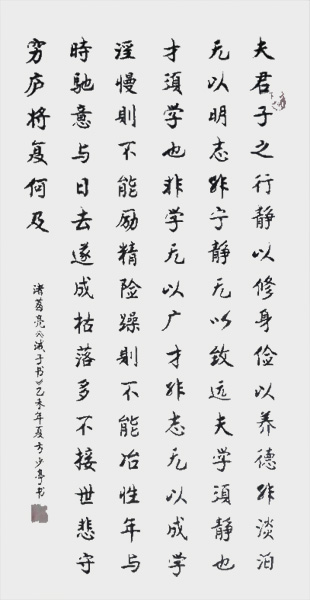 夫君子之行静以修身俭以养德非淡泊
无以明志非宁静无以致远夫学須静也
才須学也非学无以广才非志无以成学
淫慢則不能励精险躁則不能冶性年与
時驰意与日去遂成枯落多不接世悲守
穷庐将复何及
诸葛亮《诫子书》乙未年夏方少亭书